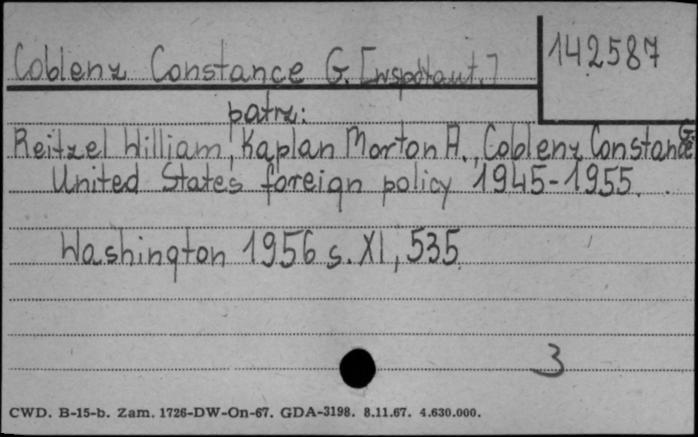 Coblenz Constance G. [współaut.]
142587
patrz:
Reitzel William, Kaplan Morton A., Coblenz Constance G.
United States foreign policy 1945-1955.
Washington 1956 s. XI, 535
3
CWD. B-15-b. Zam. 1726-DW-On-67. GDA-3198. 8.11.67. 4.630.000.